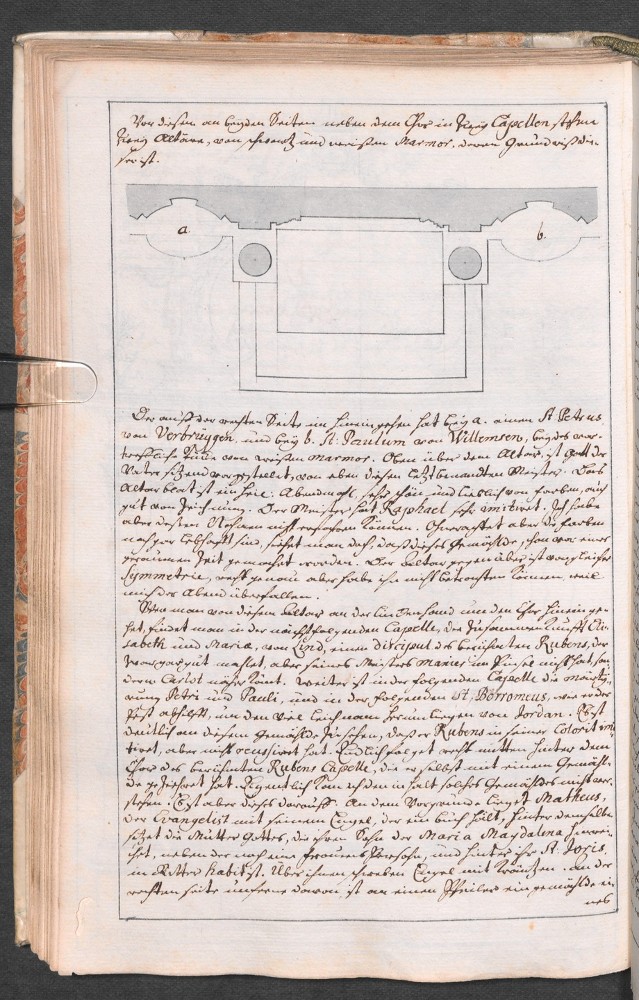 Vor diesem an beyden Seiten neben dem Chor in zwey Capellen, stehen
zwey Altäre, von schwartz und weißen Marmor, deren Grundriß die-
ser ist.
a.
b.
Der auff der rechten Seite im hineingehen hat bey a. einen St. Petrus
von Verbruggen, und bey b. St. Paulum von Willemsen, beydes vor-
treffliche von weißen marmor. Oben über dem Altar, ist Gott der
Vater sitzend vorgestellet, von eben diesen letztbenandten Meister. Das
Altar blat ist ein Abendmahl, sehr schön und lieblich von farben, auch
gut von Zeichnung. Der Meister hat Raphael sehr imitiret. Ich habe
aber dessen Nahmen nicht erfahren können. Ohnerachtet aber die farben
noch gar lebhafft sind, siehet man doch, daß dieses Gemählde, schon vor einer
geraumen Zeit gemacht worden. Der Altar gegen über ist von gleicher
Symmetrie, recht genau aber habe ihn nicht betrachten können, weil
mich der Abend überfallen.
Wen man von diesem Altar an der lincken hand um den Chor hinein ge-
het, findet man in der nächstfolgenden Capelle, die Zusammenkunfft Eli-
sabeth und Mariæ, von Lind, einem discipul des berühmten Rubens, der
zwar gar gut mahlet, aber seines Meisters Manier im Pinsel nicht hat son-
dern Carlot näher kömt. Weiter ist in der folgenden Capelle die marty-
rung Petri und Pauli, und in der folgenden St. Borromeus, wie er der
Pest abhilfft, um den viel Leichnam herum liegen von Jordan. Es ist
deutlich an diesem Gemählde zu sehen, daß er Rubens in seiner Colorit imi
tiret, aber nicht hat. Endlich folget recht mitten hinter dem
Chor des berühmten Rubens Capelle, die er selbst mit einem Gemähl-
de gezieret hat. Eigentlich kan ich den inhalt solches Gemähldes nicht ver-
stehen. Es ist aber dieses darauff. An dem Vorgrunde lieget Matheus,
der Evangelist mit seinem Engel, der ein buch hält, hinter demselben
sitzet die Mutter Gottes, die ihren Sohn der Maria Magdalena hinrei-
chet, neben der noch eine frauens Persohn, und hinter ihr St. Joris,
in Ritter habit ist. Über ihnen schweben Engel mit Kräntzen. An der
rechten seite unferne davon ist an einem Pfeiler ein gemählde ei-
nes